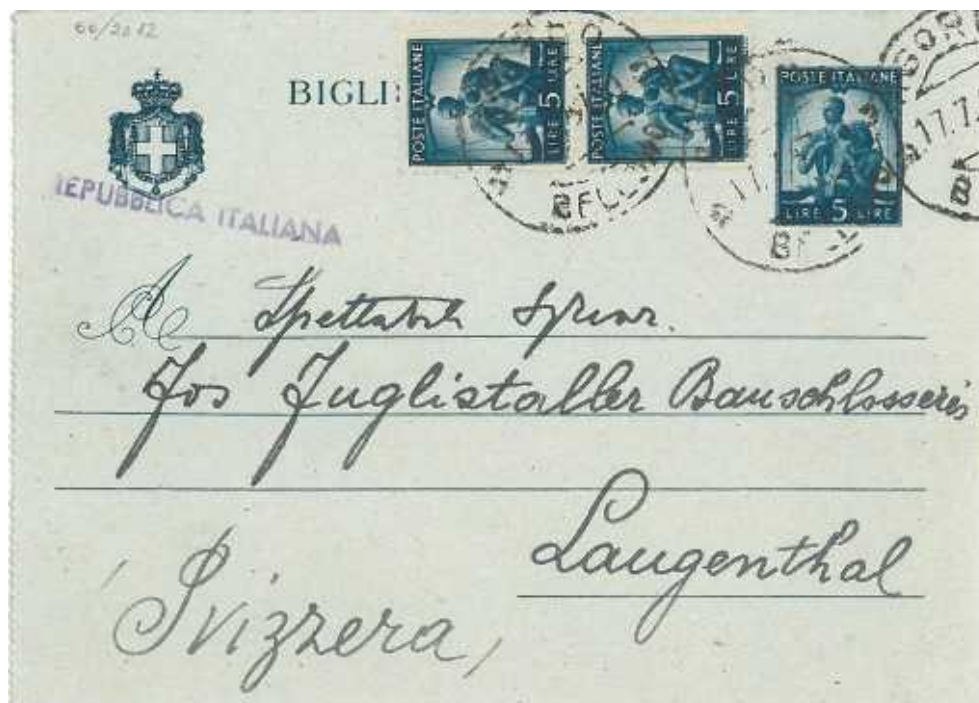 60/2012
BIGLI
POSTE ITALIANE
LIRE 5 LIRE
POSTE ITALIANE
LIRE 5 LIRE
POSTE ITALIANE
LIRE 5 LIRE
BELL
17.7
IEPUBBLICA ITALIANA
A Spettabile
Jos Juglistaller Bauschlosserei
Langenthal
Svizzera,